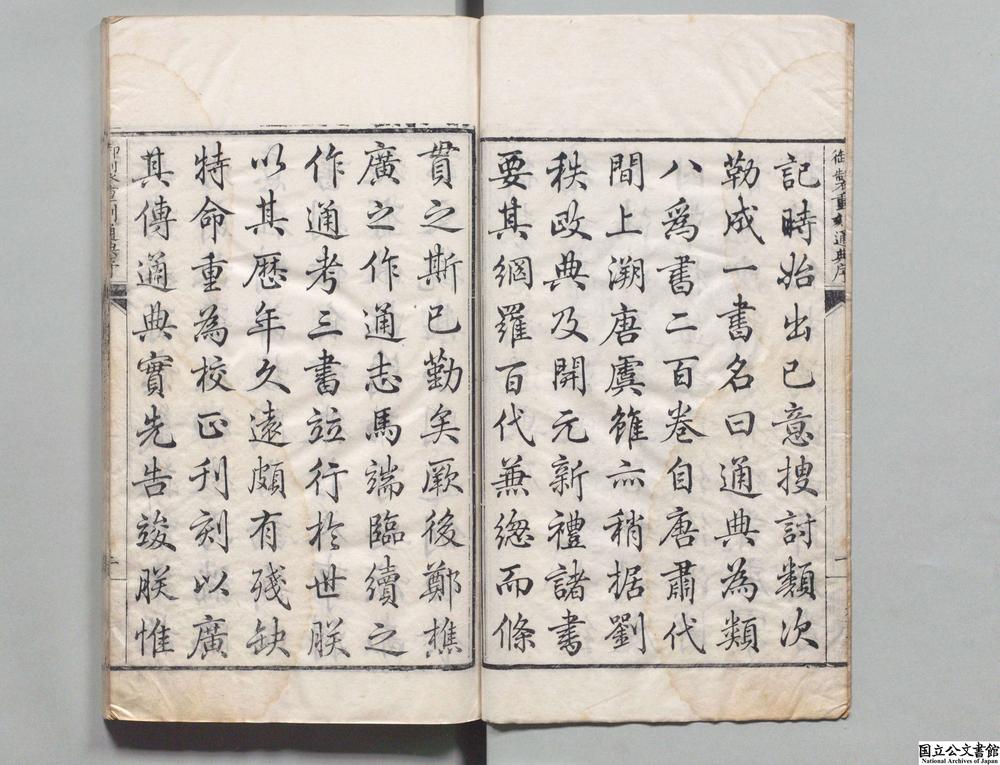 御製重刻通典序
記時始出已意捜討類次
勒成一書名曰通典為類
八爲書二百卷自唐肅代
間上溯唐虞雖亦稍据劉
秩政典及開元新禮諸書
要其網羅百代兼總而條
一
貫之斯已勤矣厥後鄭樵
廣之作通志馬端臨續之
作通考三書竝行於世朕
以其歷年久遠頗有殘缺
特命重為校正刊刻以廣
其傳通典實先告竣朕惟
国立公文書館
National Archives of Japan